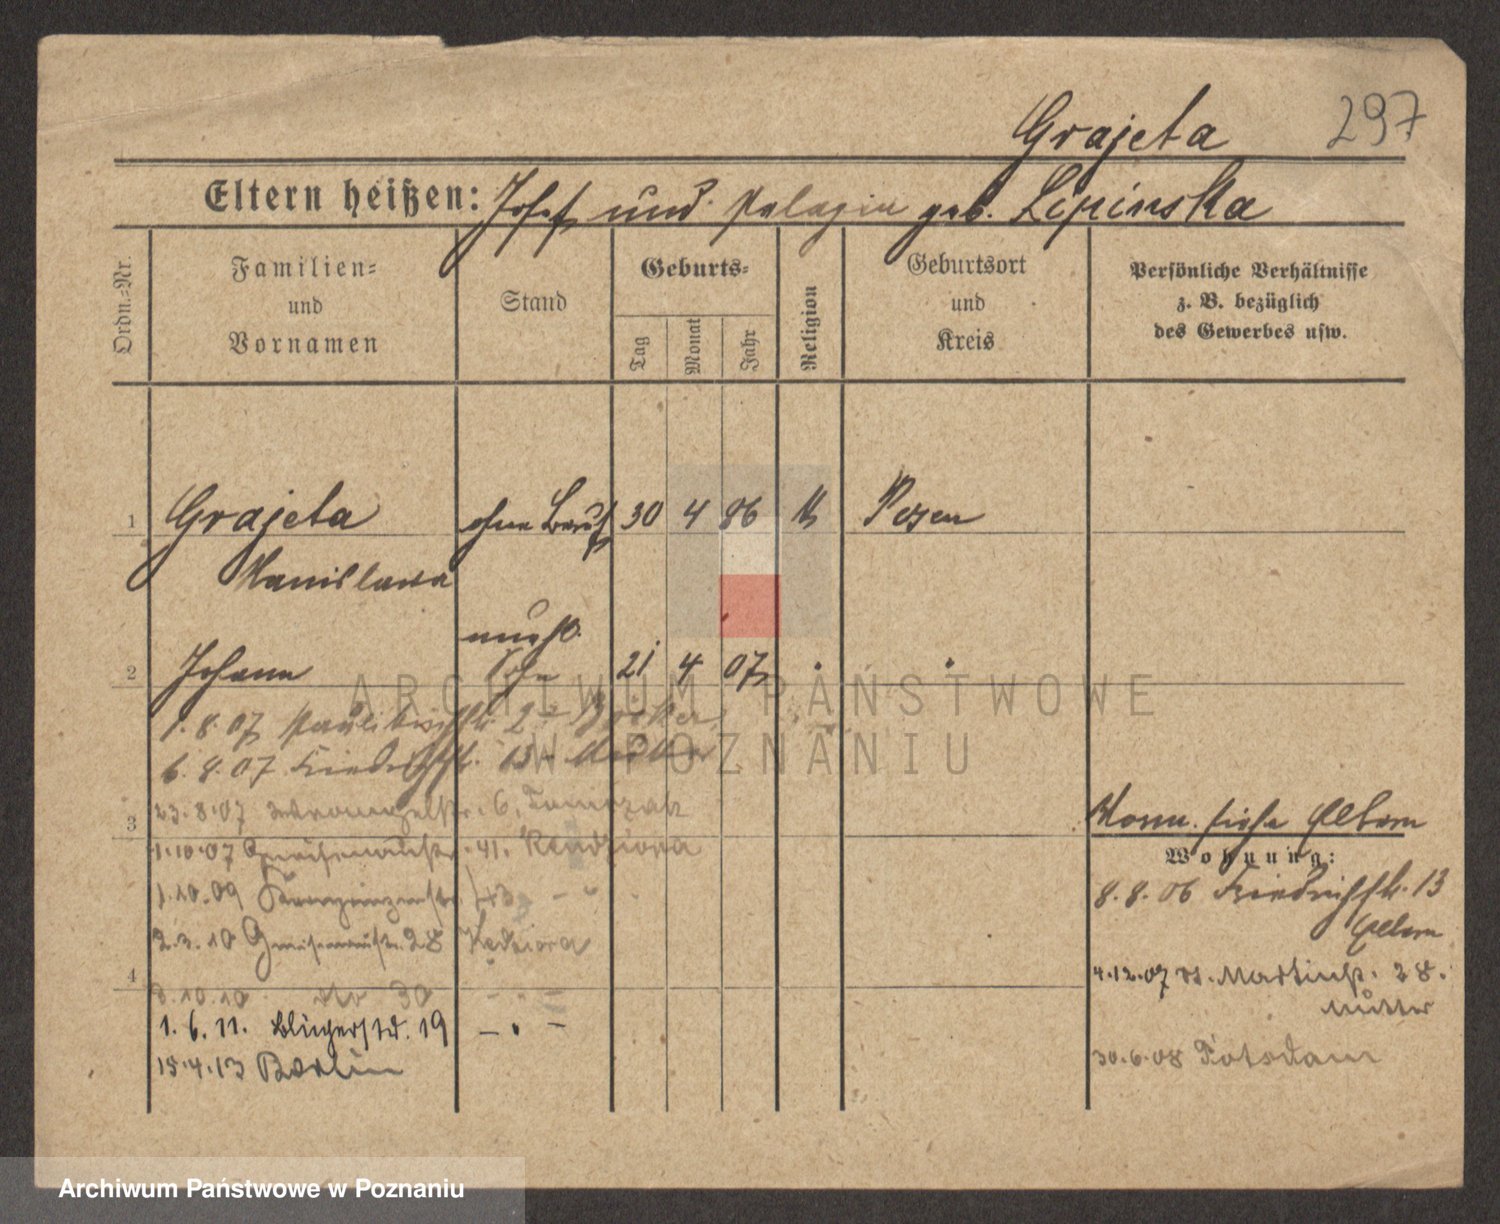 Grajeta 297
Eltern heißen: Josef und Pelagia geb. Lipinska
Ordn.-Nr.
Familien-
und
Vornamen
Stand
Geburts-
Tag
Monat
Jahr
Religion
Geburtsort
und
Kreis
Persönliche Verhältnisse
z. B. bezüglich
des Gewerbes usw.
1 Grajeta ohne Beruf 30 4 86 k Posen
Stanislawa
unehl.
2 Johann Sohn 21 4 07
1.8.07 Paulikirchstr. 2
6.8.07 Friedrichstr. 13
3 23.8.07 6.
1.10.07 Gneisenaustr. 41. Kendziora
1.10.09
2.3.10 Gneisenaustr. 28 Kedziora
4
3.10.10 30 - " -
1.6.11. 19 - " -
15.4.13 Berlin
siehe Eltern
Wohnung:
8.8.06 Friedrichstr. 13
Eltern
4.12.07 St. Martinstr. 28.
Mutter
30.6.08 Potsdam
ARCHIWUM PAŃSTWOWE
W POZNANIU
Archiwum Państwowe w Poznaniu